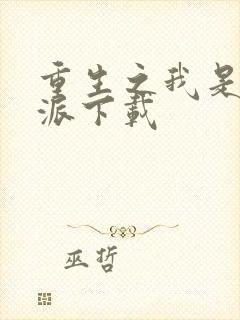 重生之我是
派下载
巫哲